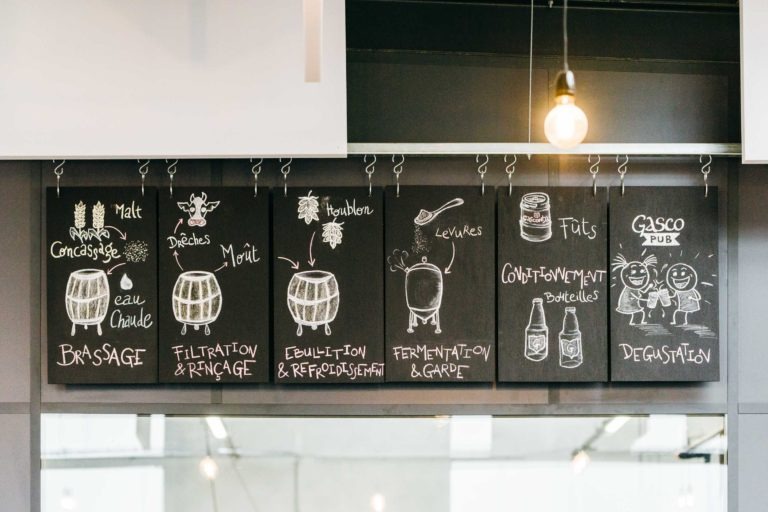 Malt
Concassage
eau
Chaude
BRASSAGE
Drêches
Moût
FILTRATION
& RINÇAGE
Houblon
EBULLITION
& REFROIDISSEMENT
Levures
FERMENTATION
& GARDE
Fûts
CONDITIONNEMENT
Bouteilles
GASCO
PUB
DEGUSTATION